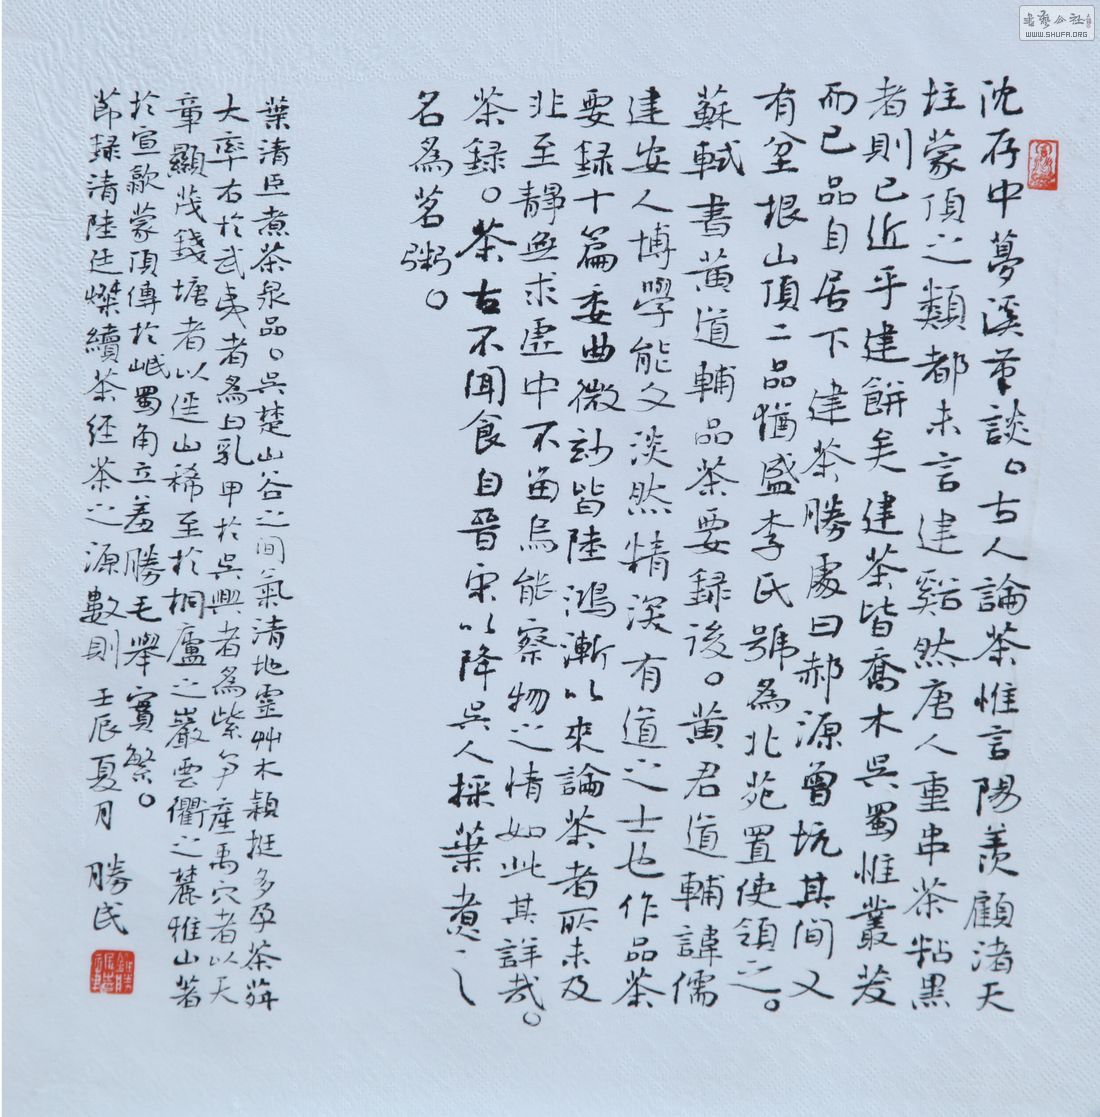 沈存中夢溪筆談。古人論茶惟言陽羨顧渚天
柱蒙頂之類都未言建谿然唐人重串茶粘黑
者則已近乎建餅矣建茶皆喬木吳蜀惟叢茇
而已品自居下建茶勝處曰郝源曾坑其間又
有坌根山頂二品猶盛李氏號為北苑置使領之。
蘇軾書黃道輔品茶要録後。黃君道輔諱儒
建安人博學能文淡然精深有道之士也作品茶
要録十篇委曲微妙皆陸鴻漸以來論茶者所未及
非至靜無求虛中不留烏能察物之情如此其詳哉。
茶録。茶古不聞食自晉宋以降吳人採葉煮之
名為茗粥。
葉清臣煮茶泉品。吳楚山谷之間氣清地靈艸木穎挺多孕茶荈
大率右於武夷者為白乳甲於吳興者為紫笋產禹穴者以天
章顯茂錢塘者以徑山稀至於桐廬之巖雲衢之麓雅山著
於宣歙蒙頂傳於岷蜀角立差勝毛舉實繁。
節録清陸廷燦續茶經茶之源數則 壬辰夏月 勝民
書藝公社
WWW.SHUFA.ORG